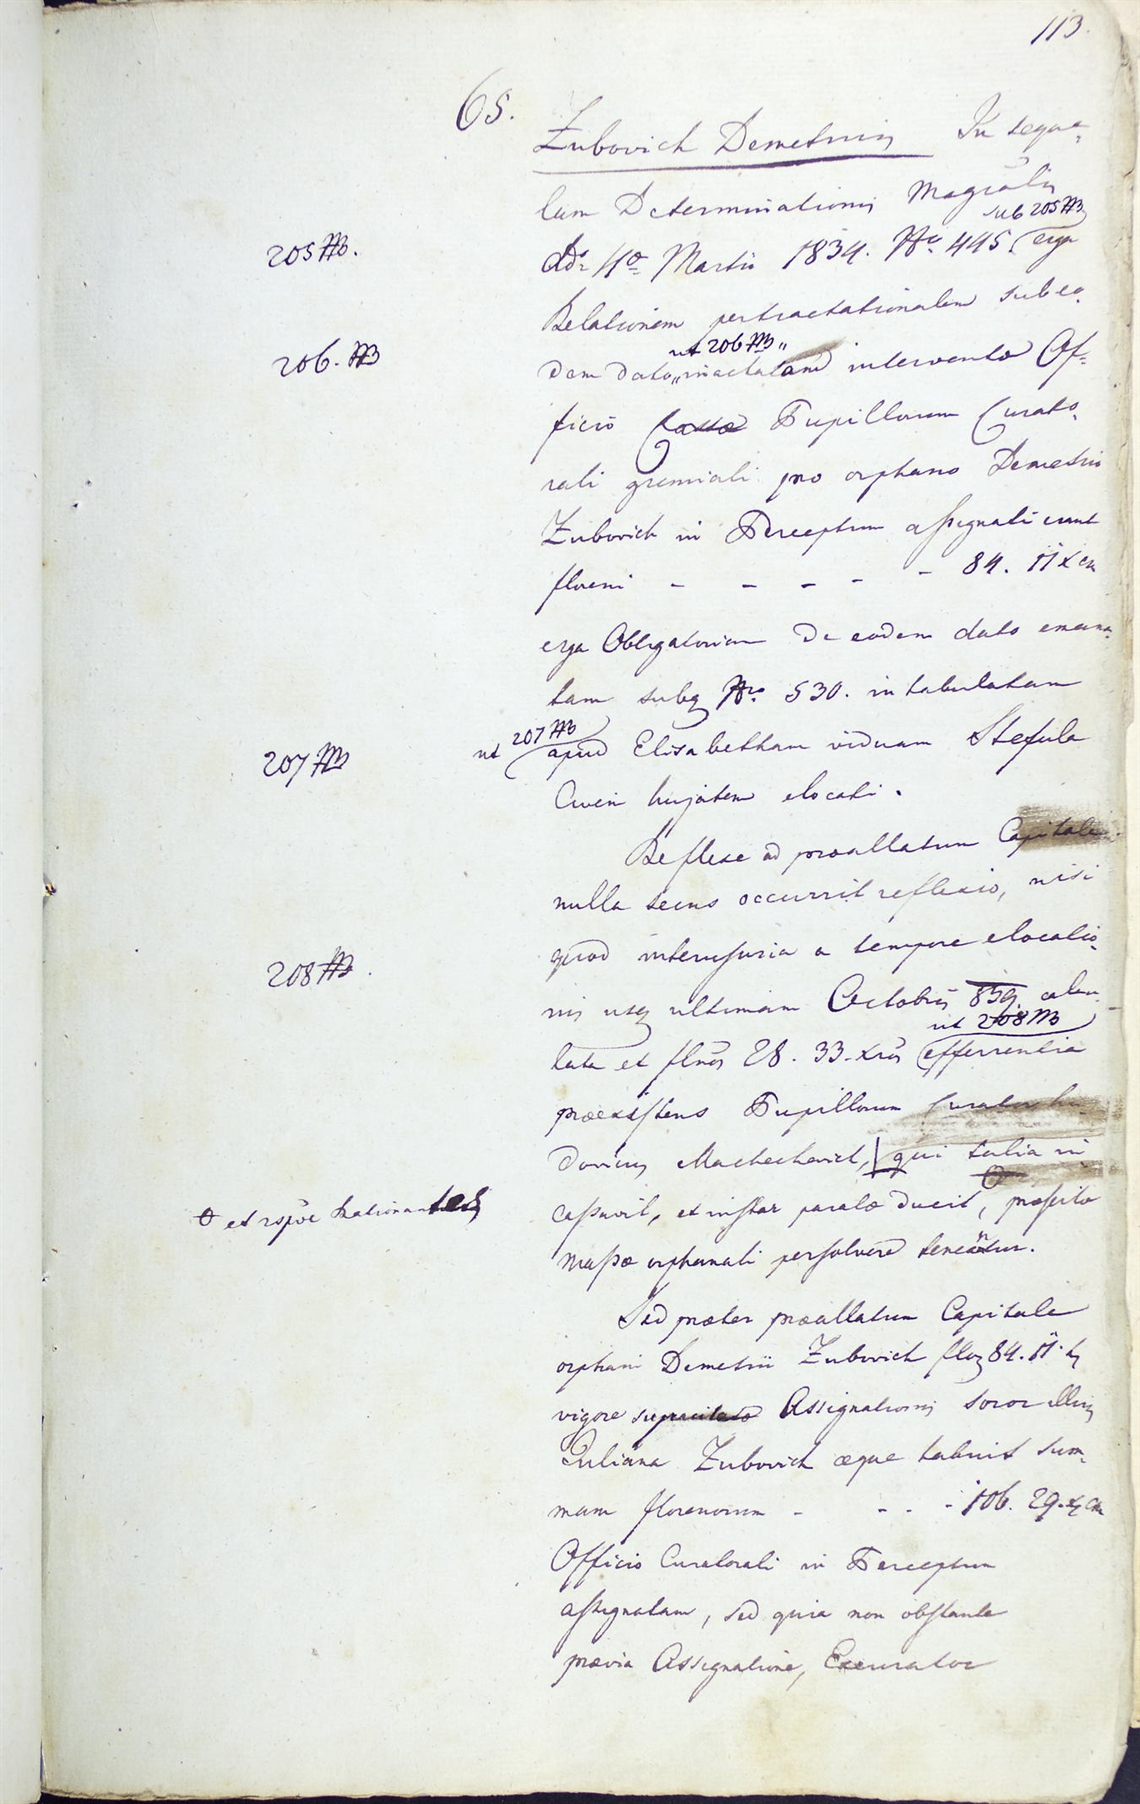 113.
65.
Zubovich Demetrius In seque=
lam Determinationis Magralis
sub 205
205
ddo 11a Martii 1834. Nro 445. erga
Relationem pertractationalem sub eo=
ut 206
206.
dem dato intervento Of=
ficio Cassae Pupillorum Curato=
rali gremiali pro orphano Demetrio
Zubovich in Perceptum assignati sunt
floreni - - - - - 84. 11 x
erga Obligatoriam de eodem dato emana=
tam subq Nro 530. intabulatam
ut 207
207
apud Elisabetham viduam Stefula
Civem hujatem elocati.
Reflexe ad proallatum Capitale
nulla secus occurrit reflexio, nisi
quod interusuria a tempore elocatio=
208
nis usq ultimam Octobris 839 calcu=
ut 208
lata et flnos 28. 33. xros efferrentia
praeexistens Pupillorum Curator Lu=
dovicus Machechevich, qui talia in
O et rspve Rationantes
cassavit, et instar paratae ducit, praessito
massae orphanali persolvere teneantur.
Sed praeter praeallatum Capitale
orphani Demetrii Zubovich 84. 11.
vigore supracitatae Assignationis soror illius
Juliana Zubovich aeque habuit sum=
mam florenorum - - - - 106. 29.
Officio Curatorali in Perceptum
assignatam, sed quia non obstante
praevia Assignatione, Excurator